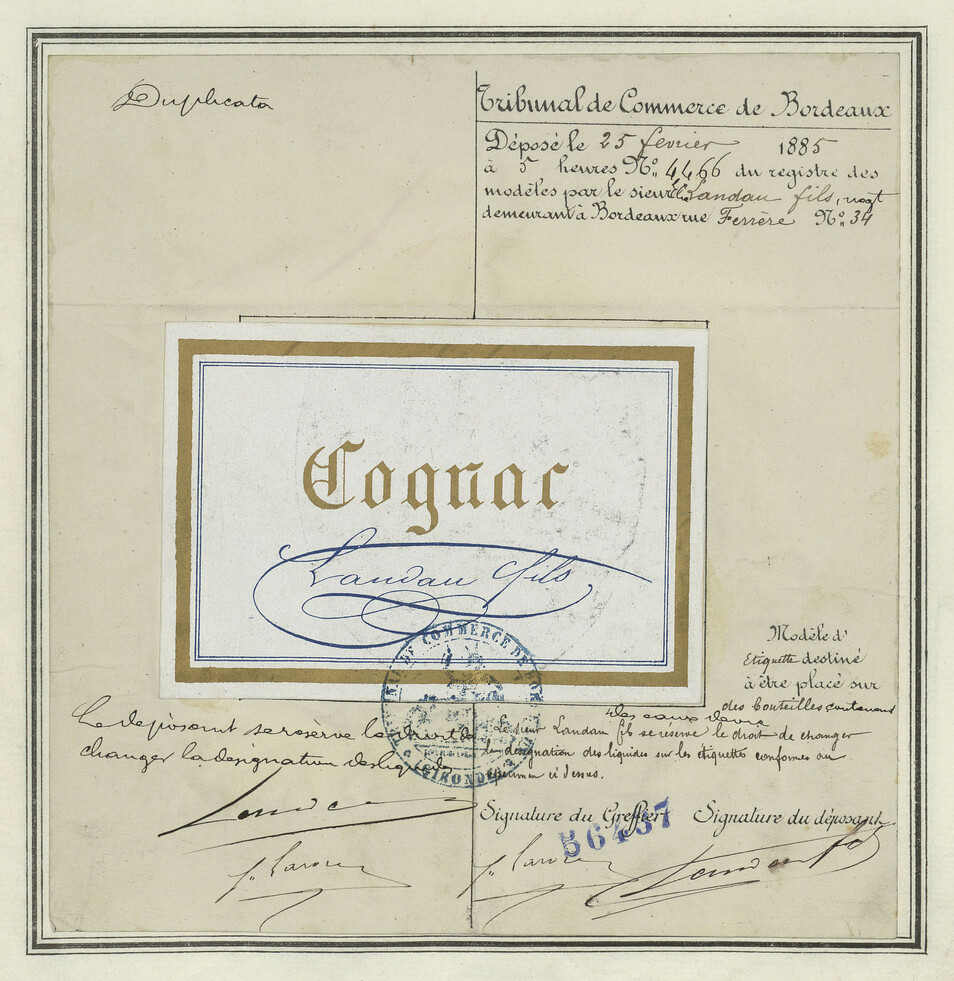 Duplicata
Tribunal de Commerce de Bordeaux
Déposé le 25 février 1885
à 5 heures No. 4466 du registre des
modèles par le sieur Landau fils, nogt
demeurant à Bordeaux rue Ferrère No. 34
Cognac
Landau fils
TRIBUNAL DE COMMERCE DE BORDEAUX
GIRONDE
Modèle d'
Etiquette destiné
à être placé sur
des bouteilles contenant
des eaux de vie
Le déposant se réserve le droit de
changer la désignation des liquides
Le sieur Landau fils se réserve le droit de changer
la désignation des liquides sur les étiquettes conformes au
spécimen ci dessus.
Signature du Greffier Signature du déposant
56437
Landau fils